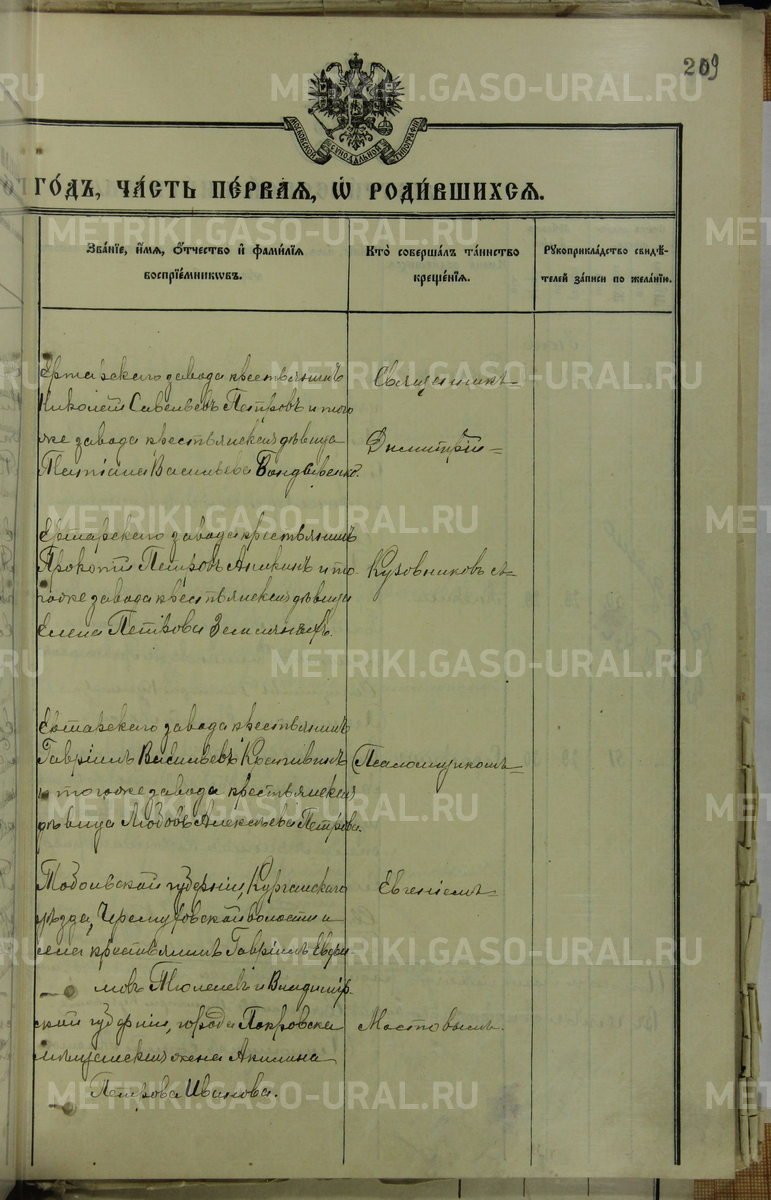 209
МОСКОВСКОЙ СѴНОДАЛЬНОЙ ТИПОГРАФІИ
ГОДЪ, ЧАСТЬ ПЕРВАЯ, Ѡ РОДИВШИХСЯ.
Званіе, имя, отчество и фамилія
воспріемниковъ.
Кто совершалъ таинство
крещенія.
Рукоприкладство свидѣ-
телей записи по желанію.
Ертарскаго завода крестьянинъ
Николай Савельевъ Петровъ и того
же завода крестьянская дѣвица
Татіана Васильева
Священникъ
Димитрій
Ертарскаго завода крестьянинъ
Прокопій Петровъ Аникинъ и то-
гоже завода крестьянская дѣвица
Елена Петрова
Кузовниковъ съ
Ертарскаго завода крестьянинъ
Гавріилъ Васильевъ
и тогоже завода крестьянская
дѣвица Любовь Алексѣева Петрова.
Псаломщикомъ
Тобольской губерніи, Курганскаго
уѣзда, Черемуховской волости и
села крестьянинъ Гавріилъ Евфи-
мовъ Тюленевъ и Владимір-
ской губерніи, города Покровска
мѣщанская жена Акилина
Петрова Иванова.
Евгеніемъ
Мостовымъ.
METRIKI.GASO-URAL.RU